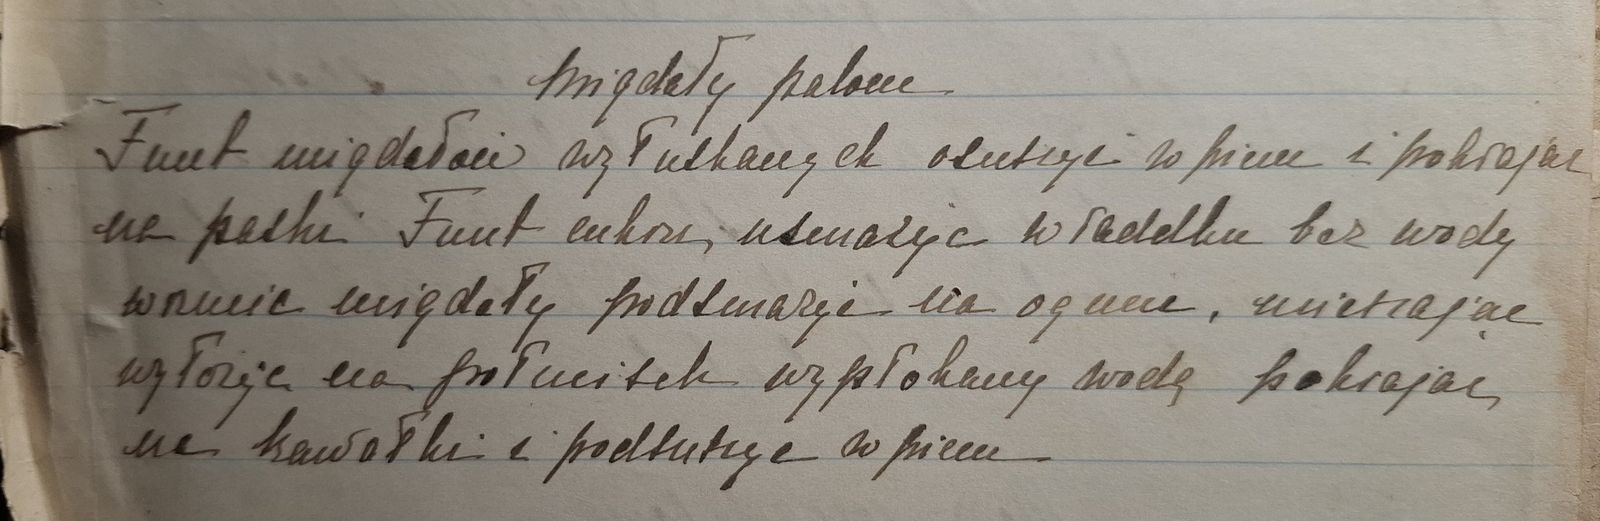 Migdały palone
Funt migdałów wyłuskanych osuszyć w piecu i pokrajać
na paski Funt cukru, usmażyć w radelku bez wody
wrzucić migdały podsmażyć na ogniu, mieszając
wyłożyć na półmisek wypłokany wodą pokrajać,
na kawałki i podsuszyć w piecu